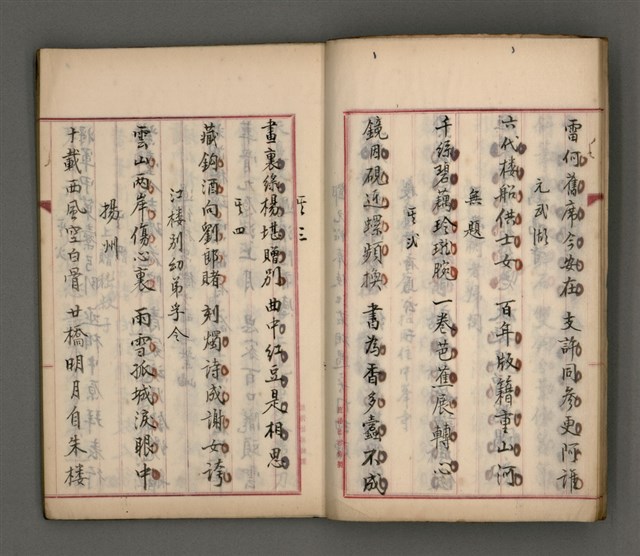 雷何舊席今安在 支許同參更阿誰
元武湖
六代樓船供士女 百年版籍重山河
無題
千絲碧藕玲瓏腕 一卷芭蕉展轉心
其弍
鏡因硯近螺頻換 書為香多蠹不成
其三
畫裏綠楊堪贈別 曲中紅豆是相思
其四
藏鈎酒向劉郎賭 刻燭詩成謝女誇
江樓別幼弟孚令
雲山兩岸傷心裏 雨雪孤城淚眼中
揚州
十載西風空白骨 廿橋明月自朱樓